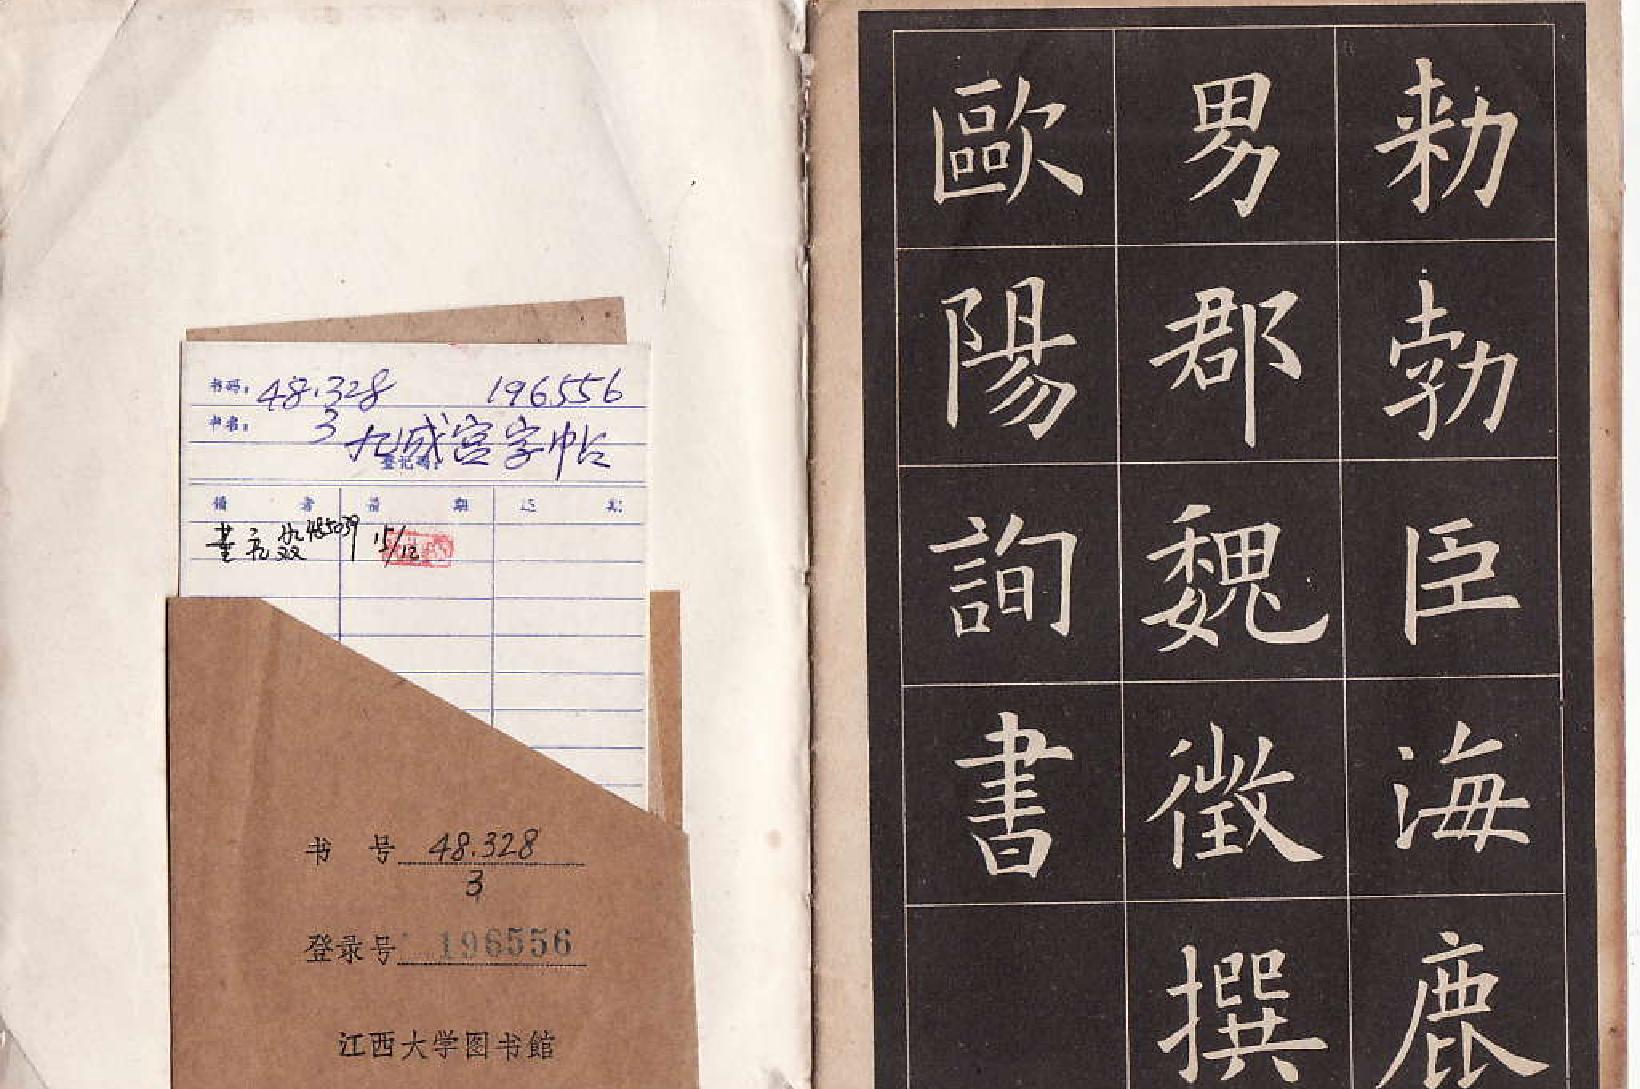 书码: 48.328 196556
书名: 3 九成宫字帖
登记码:
借者 借期 还期
董 485039 15/12
书 号 48.328
3
登录号 196556
江西大学图书館
勑勃臣海鹿
男郡魏徵撰
歐陽詢書